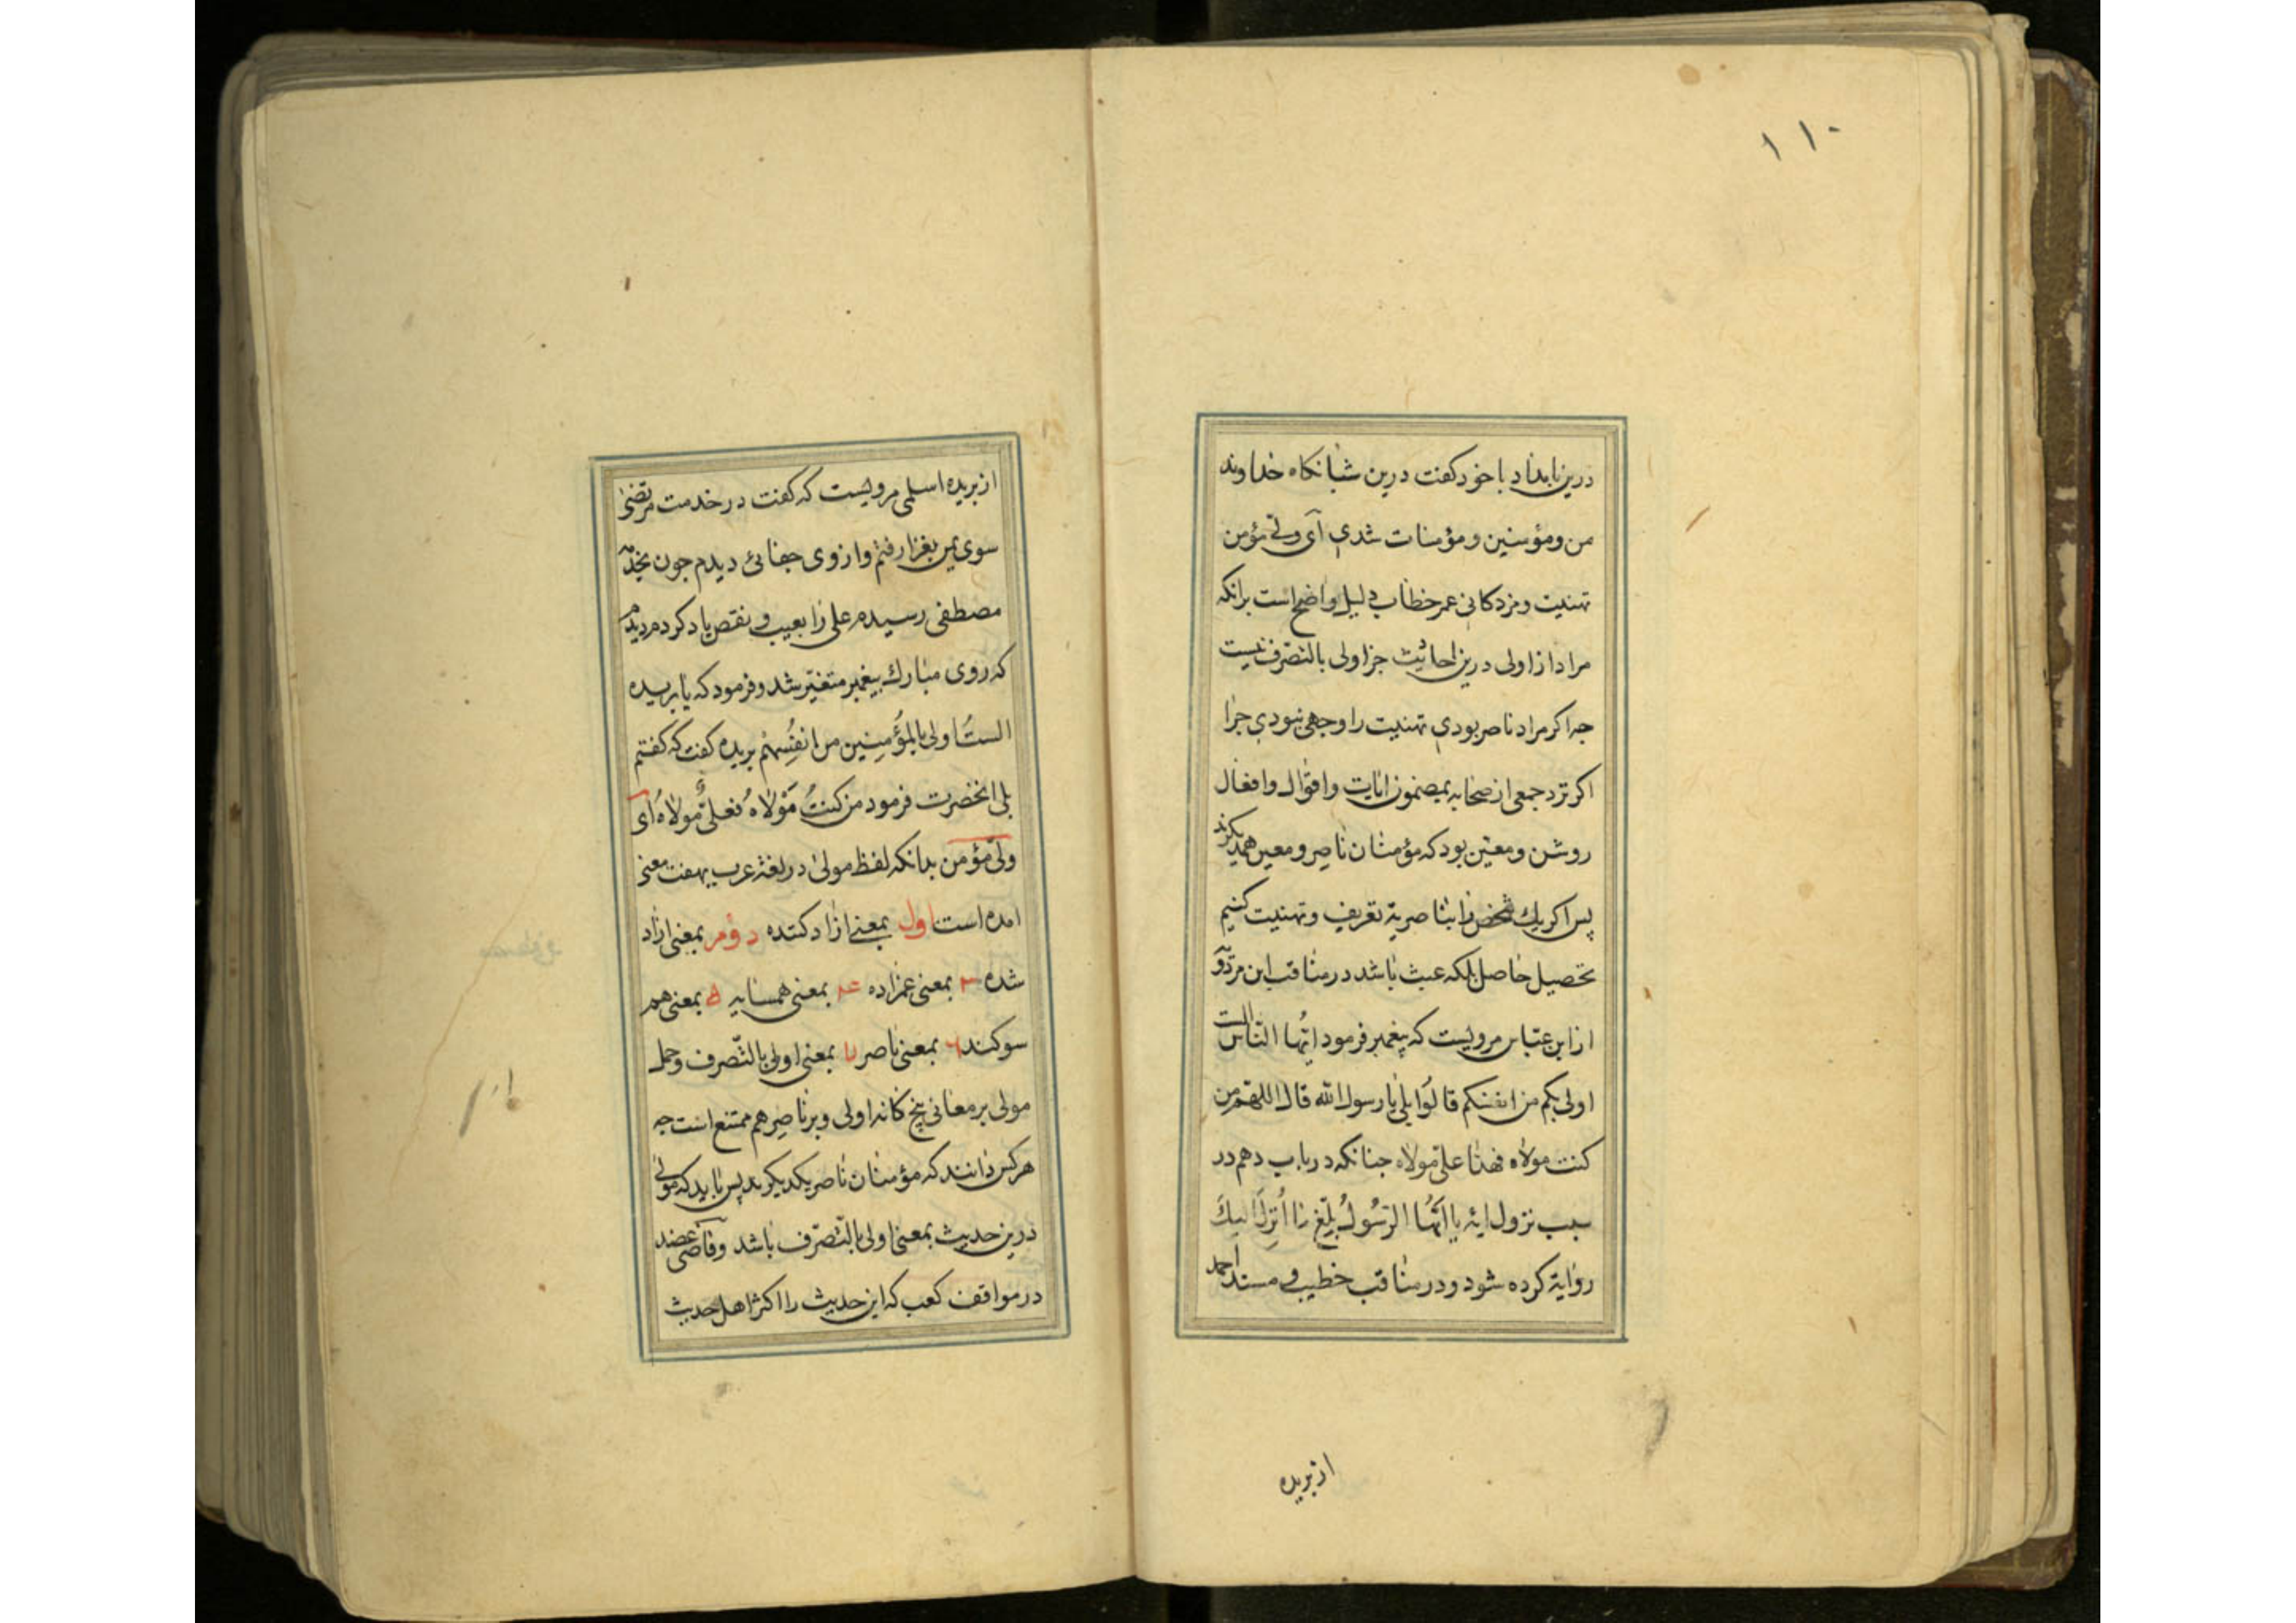 ۱۱۰
درین بامداد باخود کفت درین شبانکاه خداوند
من ومؤمنین ومؤمنات شدی آی ولیّ مؤمن
تهنیت ومزدکانی عمر خطاب دلیل واضح است برانکه
مراد از اولی درین احادیث جز اولی بالتصرف نیست
جه اکر مراد ناصر بودی تهنیت را وجهی نبودی جرا
اکر نزد جمعی از صحابه بمضمون ایات واقوال وافعال
روشن ومعیّن بود که مؤمنان ناصر ومعین همدیکرند
پس اکر یك شخص را بناصریة تعریف وتهنیت کنیم
تحصیل حاصل بلکه عبث باشد در مناقب ابن مردوَ
از ابن عبّاس مرویست که پیغمبر فرمود ایّها النّاس الست
اولی بکم من انفسکم قالُوا بلی یا رسول الله قال اللهمّ من
کنت مولاه فهذا علیّ مولاه جنانکه در باب دهم در
سبب نزول ایهٔ یا ایُّهَا الرّسُولُ بلِّغ ما اُنزِلَ الیكَ
روایة کرده شود ودر مناقب خطیب و مسند احمد
از بریده
از بریده اسلمی مرویست که کفت در خدمت مرتضیٰ
سوی یمن بغزا رفتم واز وی جفائی دیدم جون بخدمة
مصطفی رسیدم علی را بعیب و نقص یاد کردم دیدم
که روی مبارك پیغمبر متغیّر شد وفرمود که یا بریده
الستُ اولی بالمؤمِنین من انفُسِهْم بریده کفت که کفتم
بلی انحضرت فرمود من کنتُ مَوْلاهُ فعلیٌّ مولاهُ أی
ولیّ مؤمن بدانکه لفظ مولیٰ در لغة عرب بهفت معنی
امده است اول بمعنی ازاد کننده دوم بمعنی ازاد
شده ۳ بمعنی عمزاده ۴ بمعنی همسایه ۵ بمعنی هم
سوکند ۶ بمعنی ناصر ۷ بمعنی اولی بالتّصرف وحمل
مولی بر معانی پنج کانه اولی وبر ناصر هم ممتنع است جه
هر کس دانند که مؤمنان ناصر یکدیکرند پس باید که مولیٰ
درین حدیث بمعنی اولی بالتّصرّف باشد وقاضی عضد
در مواقف کعب که این حدیث را اکثر اهل حدیث